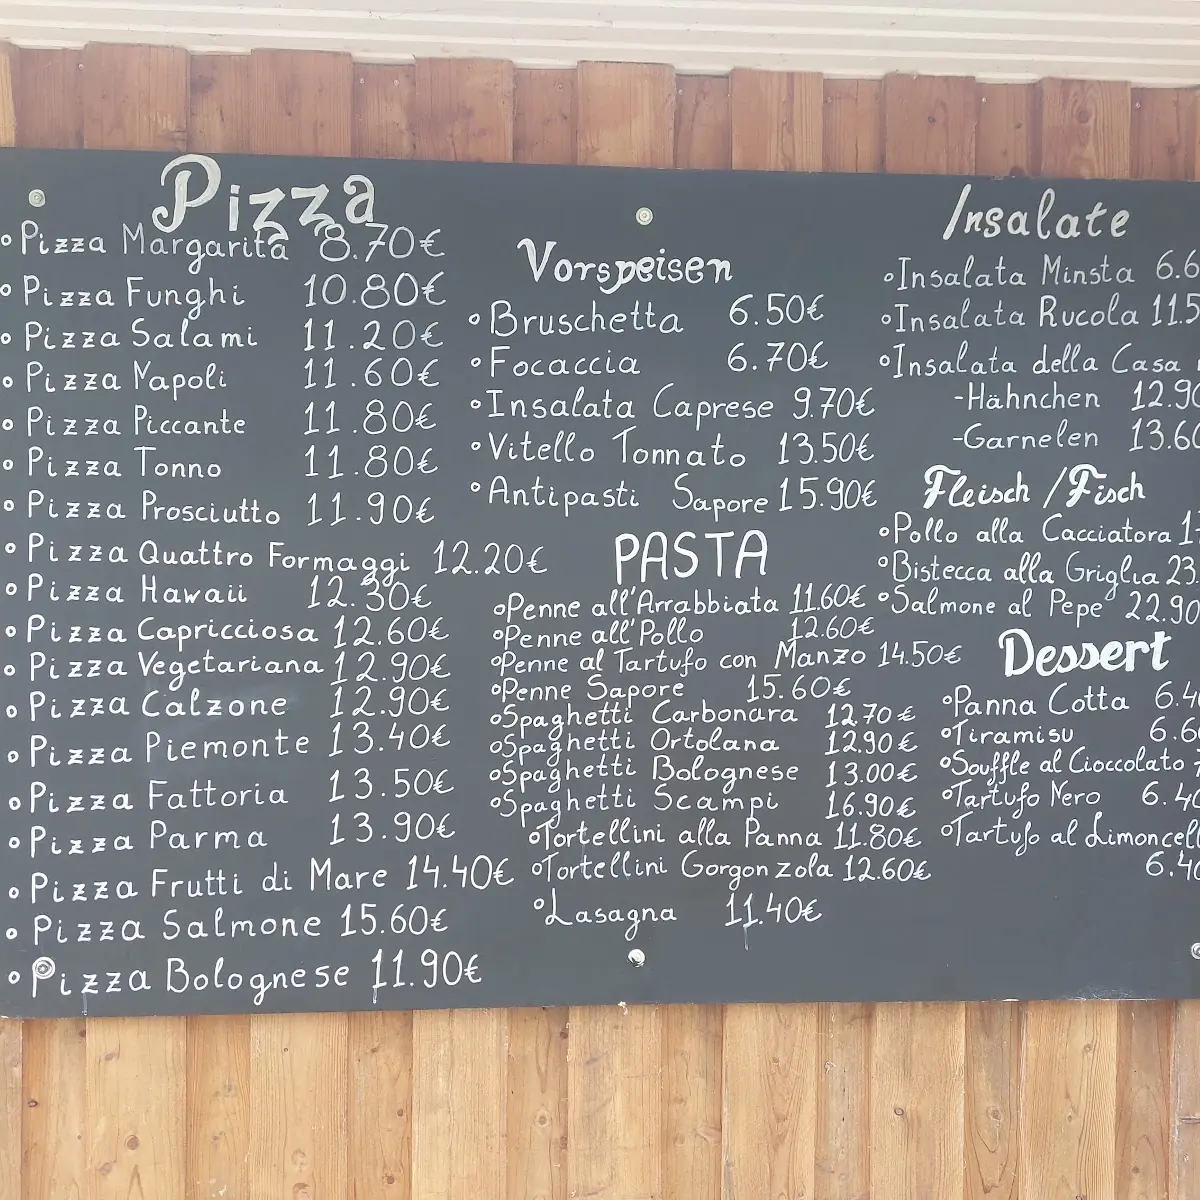 Pizza
°Pizza Margarita 8.70€
°Pizza Funghi 10.80€
°Pizza Salami 11.20€
°Pizza Napoli 11.60€
°Pizza Piccante 11.80€
°Pizza Tonno 11.80€
°Pizza Prosciutto 11.90€
°Pizza Quattro Formaggi 12.20€
°Pizza Hawaii 12.30€
°Pizza Capricciosa 12.60€
°Pizza Vegetariana 12.90€
°Pizza Calzone 12.90€
°Pizza Piemonte 13.40€
°Pizza Fattoria 13.50€
°Pizza Parma 13.90€
°Pizza Frutti di Mare 14.40€
°Pizza Salmone 15.60€
°Pizza Bolognese 11.90€
Vorspeisen
°Bruschetta 6.50€
°Focaccia 6.70€
°Insalata Caprese 9.70€
°Vitello Tonnato 13.50€
°Antipasti Sapore 15.90€
PASTA
°Penne all'Arrabbiata 11.60€
°Penne all'Pollo 12.60€
°Penne al Tartufo con Manzo 14.50€
°Penne Sapore 15.60€
°Spaghetti Carbonara 12.70€
°Spaghetti Ortolana 12.90€
°Spaghetti Bolognese 13.00€
°Spaghetti Scampi 16.90€
°Tortellini alla Panna 11.80€
°Tortellini Gorgonzola 12.60€
°Lasagna 11.40€
Insalate
°Insalata Minsta 6.6
°Insalata Rucola 11.5
°Insalata della Casa
-Hähnchen 12.90
-Garnelen 13.60
Fleisch/Fisch
°Pollo alla Cacciatora 1
°Bistecca alla Griglia 23
°Salmone al Pepe 22.90
Dessert
°Panna Cotta 6.4
°Tiramisu 6.6
°Souffle al Cioccolato
°Tartufo Nero 6.40
°Tartufo al Limoncell
6.40